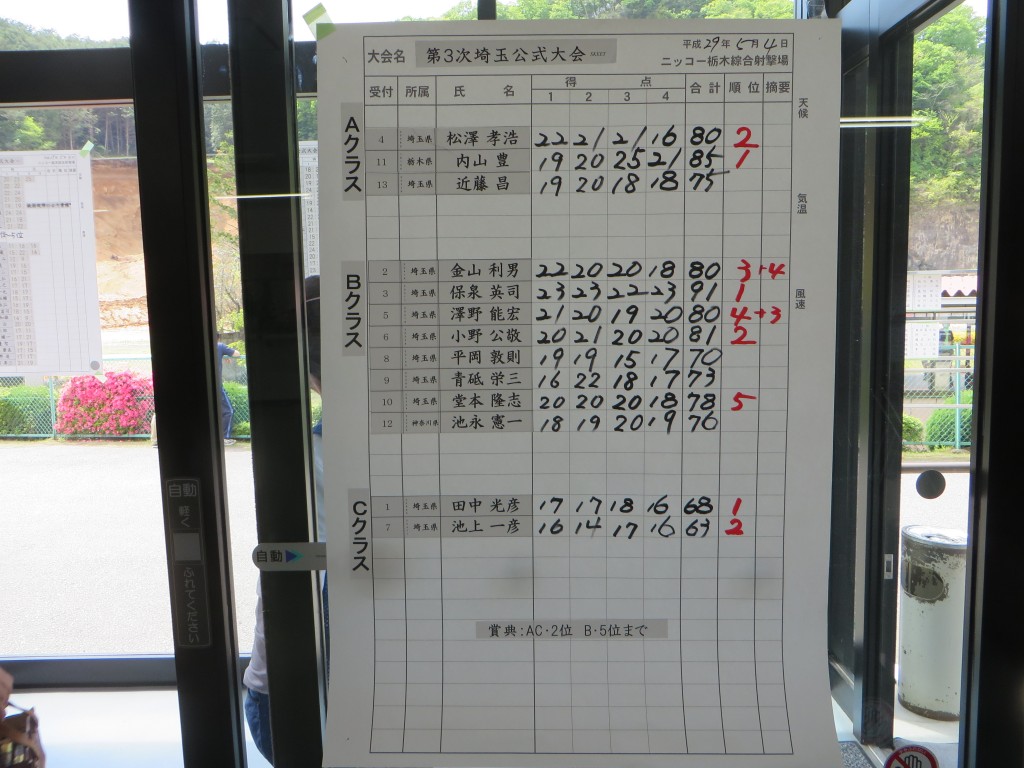 大会名 第3次埼玉公式大会 平成29年5月4日
ニッコー栃木綜合射撃場
受付 所属 氏名 得点 1 2 3 4 合計 順位 摘要
天候
気温
風速
Aクラス
4 埼玉県 松澤 孝浩 22 21 21 16 80 2
11 栃木県 内山 豊 19 20 25 21 85 1
13 埼玉県 近藤 昌 19 20 18 18 75
Bクラス
2 埼玉県 金山 利男 22 20 20 18 80 3 +4
3 埼玉県 保泉 英司 23 23 22 23 91 1
5 埼玉県 澤野 能宏 21 20 19 20 80 4 +3
6 埼玉県 小野 公敬 20 21 20 20 81 2
8 埼玉県 平岡 敦則 19 19 15 17 70
9 埼玉県 青砥 栄三 16 22 18 17 73
10 埼玉県 堂本 隆志 20 20 20 18 78 5
12 神奈川県 池永 憲一 18 19 20 19 70
Cクラス
1 埼玉県 田中 光彦 17 17 18 16 68 1
7 埼玉県 池上 一彦 16 14 17 16 63 2
賞典:AC・2位 B・5位まで
自動
軽く
ふれてください
自動